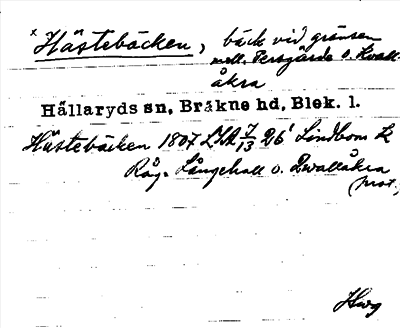 x Hästebäcken, bäck vid gränsen
mell. Persgärde o. Kvall-
åkra
Hällaryds sn, Bräkne hd, Blek. l.
Hästebäcken 1807 LSA 7/13 26' Lindbom L
Råg. Långehall o. Qvallåkra
(prot.)
Hwg